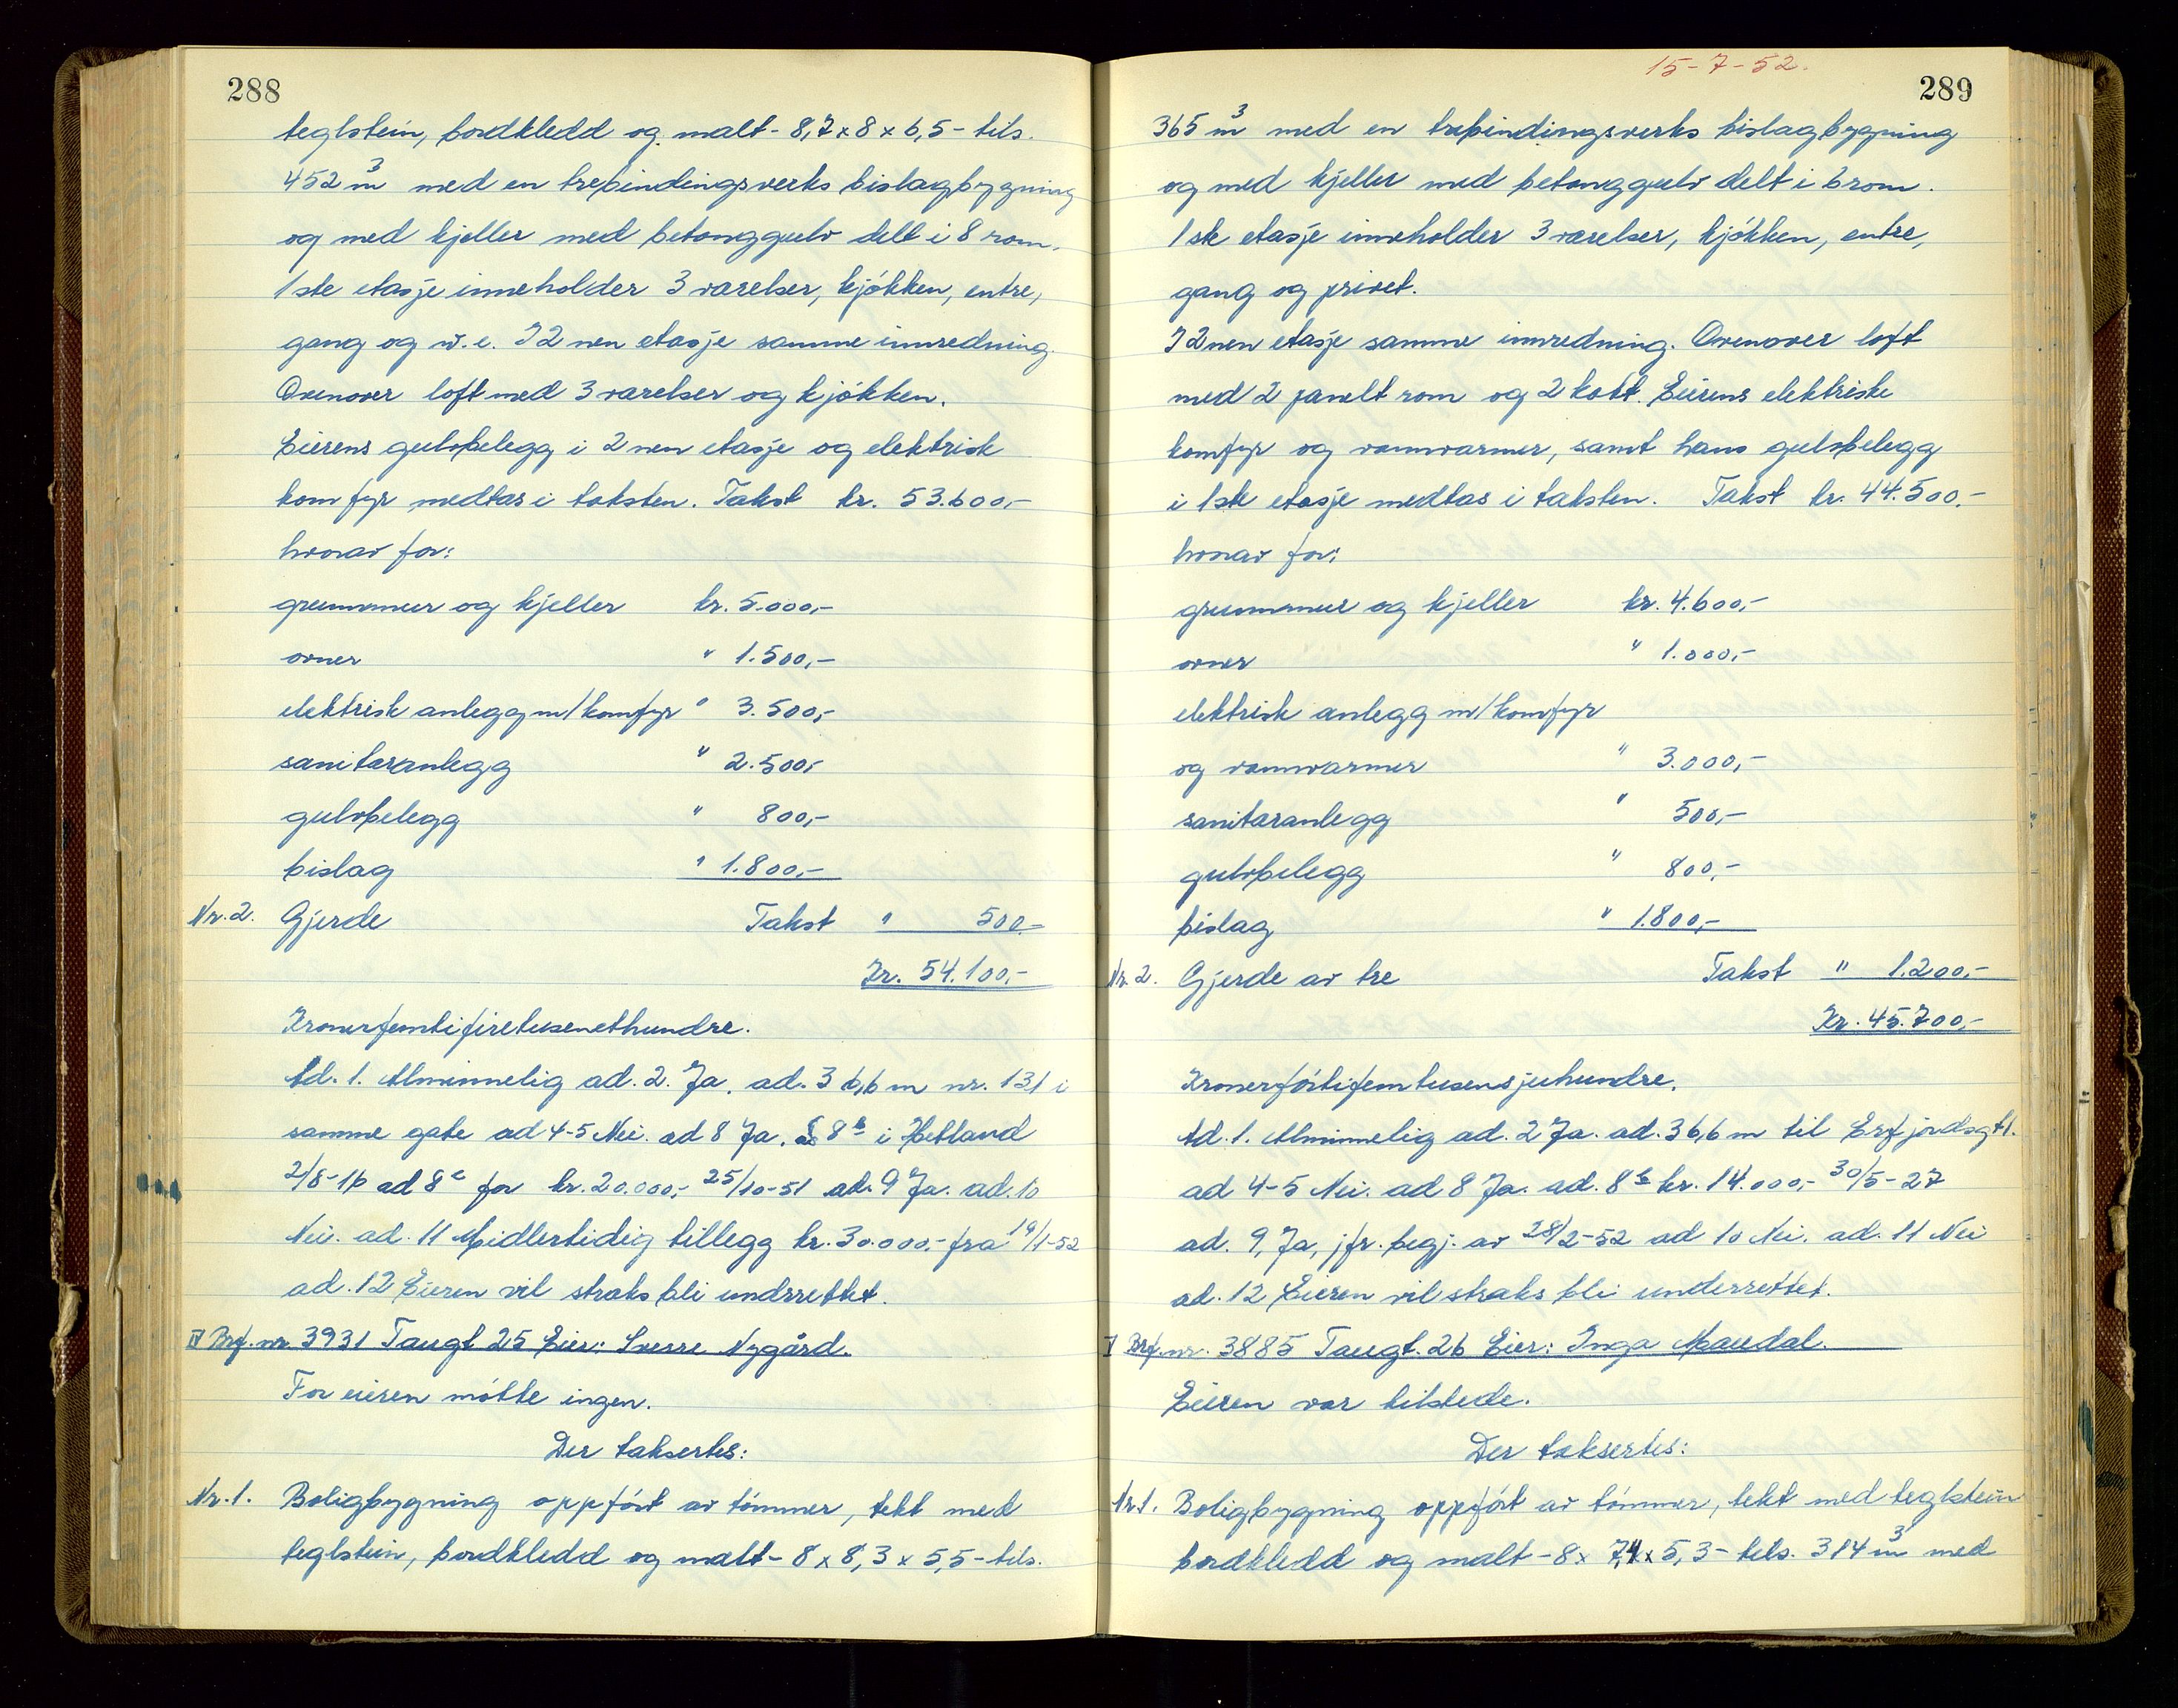 288
teglstein, bordkledd og malt - 8,7 x 8 x 6,5 - tils.
452 m³ med en trebindingsverks bislagbygning
og med kjeller med betonggulv delt i 8 rom.
1ste etasje inneholder 3 værelser, kjøkken, entre,
gang og w.c. I 2nen etasje samme innredning.
Ovenover loft med 3 værelser og kjøkken.
Eierens gulvbelegg i 2nen etasje og elektrisk
komfyr medtas i taksten. Takst kr. 53.600,-
hvorav for:
grunnmur og kjeller kr. 5.000,-
ovner " 1.500,-
elektrisk anlegg m/komfyr " 3.500,-
sanitæranlegg " 2.500,-
gulvbelegg " 800,-
bislag " 1.800,-
Nr. 2. Gjerde Takst " 500,-
Kr. 54.100,-
Kronerfemtifiretusenethundre.
Ad. 1. Alminnelig ad. 2. Ja. ad. 3 6,6 m nr. 131 i
samme gate ad 4-5 Nei. ad 8 Ja, § 8 b i Hetland
2/8-16 ad 8 c for kr. 20.000,- 25/10-51 ad. 9 Ja. ad. 10
Nei. ad. 11 Midlertidig tillegg kr. 30.000,- fra 19/1-52
ad. 12 Eieren vil straks bli underrettet.
IV Brf. nr. 3931 Taugt 25 Eier: Sverre Nygård.
For eieren møtte ingen.
Der taksertes:
Nr. 1. Boligbygning oppført av tømmer, tekt med
teglstein, bordkledd og malt - 8 x 8,3 x 5,5 - tils.
15-7-52.
289
365 m³ med en trebindingsverks bislagbygning
og med kjeller med betonggulv delt i 6 rom.
1ste etasje inneholder 3 værelser, kjøkken, entre,
gang og privet.
I 2nen etasje samme innredning. Ovenover loft
med 2 panelt rom og 2 kott. Eierens elektriske
komfyr og vannvarmer, samt hans gulvbelegg
i 1ste etasje medtas i taksten. Takst kr. 44.500,-
hvorav for:
grunnmur og kjeller kr. 4.600,-
ovner " 1.000,-
elektrisk anlegg m/komfyr
og vannvarmer " 3.000,-
sanitæranlegg " 500,-
gulvbelegg " 800,-
bislag " 1.800,-
Nr. 2. Gjerde av tre Takst " 1.200,-
Kr. 45.700,-
Kronerførtifemtusensjuhundre.
Ad. 1. Alminnelig ad. 2 Ja. ad. 3 6,6 m til Erfjordsgt 1.
ad 4-5 Nei. ad 8 Ja. ad. 8 b kr. 14.000,- 30/5-27
ad. 9, Ja, jfr. begj. av 28/2-52 ad 10 Nei. ad. 11 Nei
ad. 12 Eieren vil straks bli underrettet.
V Brf. nr. 3885 Taugt. 26 Eier: Inga Maudal.
Eieren var tilstede.
Der taksertes:
Nr. 1. Boligbygning oppført av tømmer, tekt med teglstein
bordkledd og malt - 8 x 7,4 x 5,3 - tils. 314 m³ med